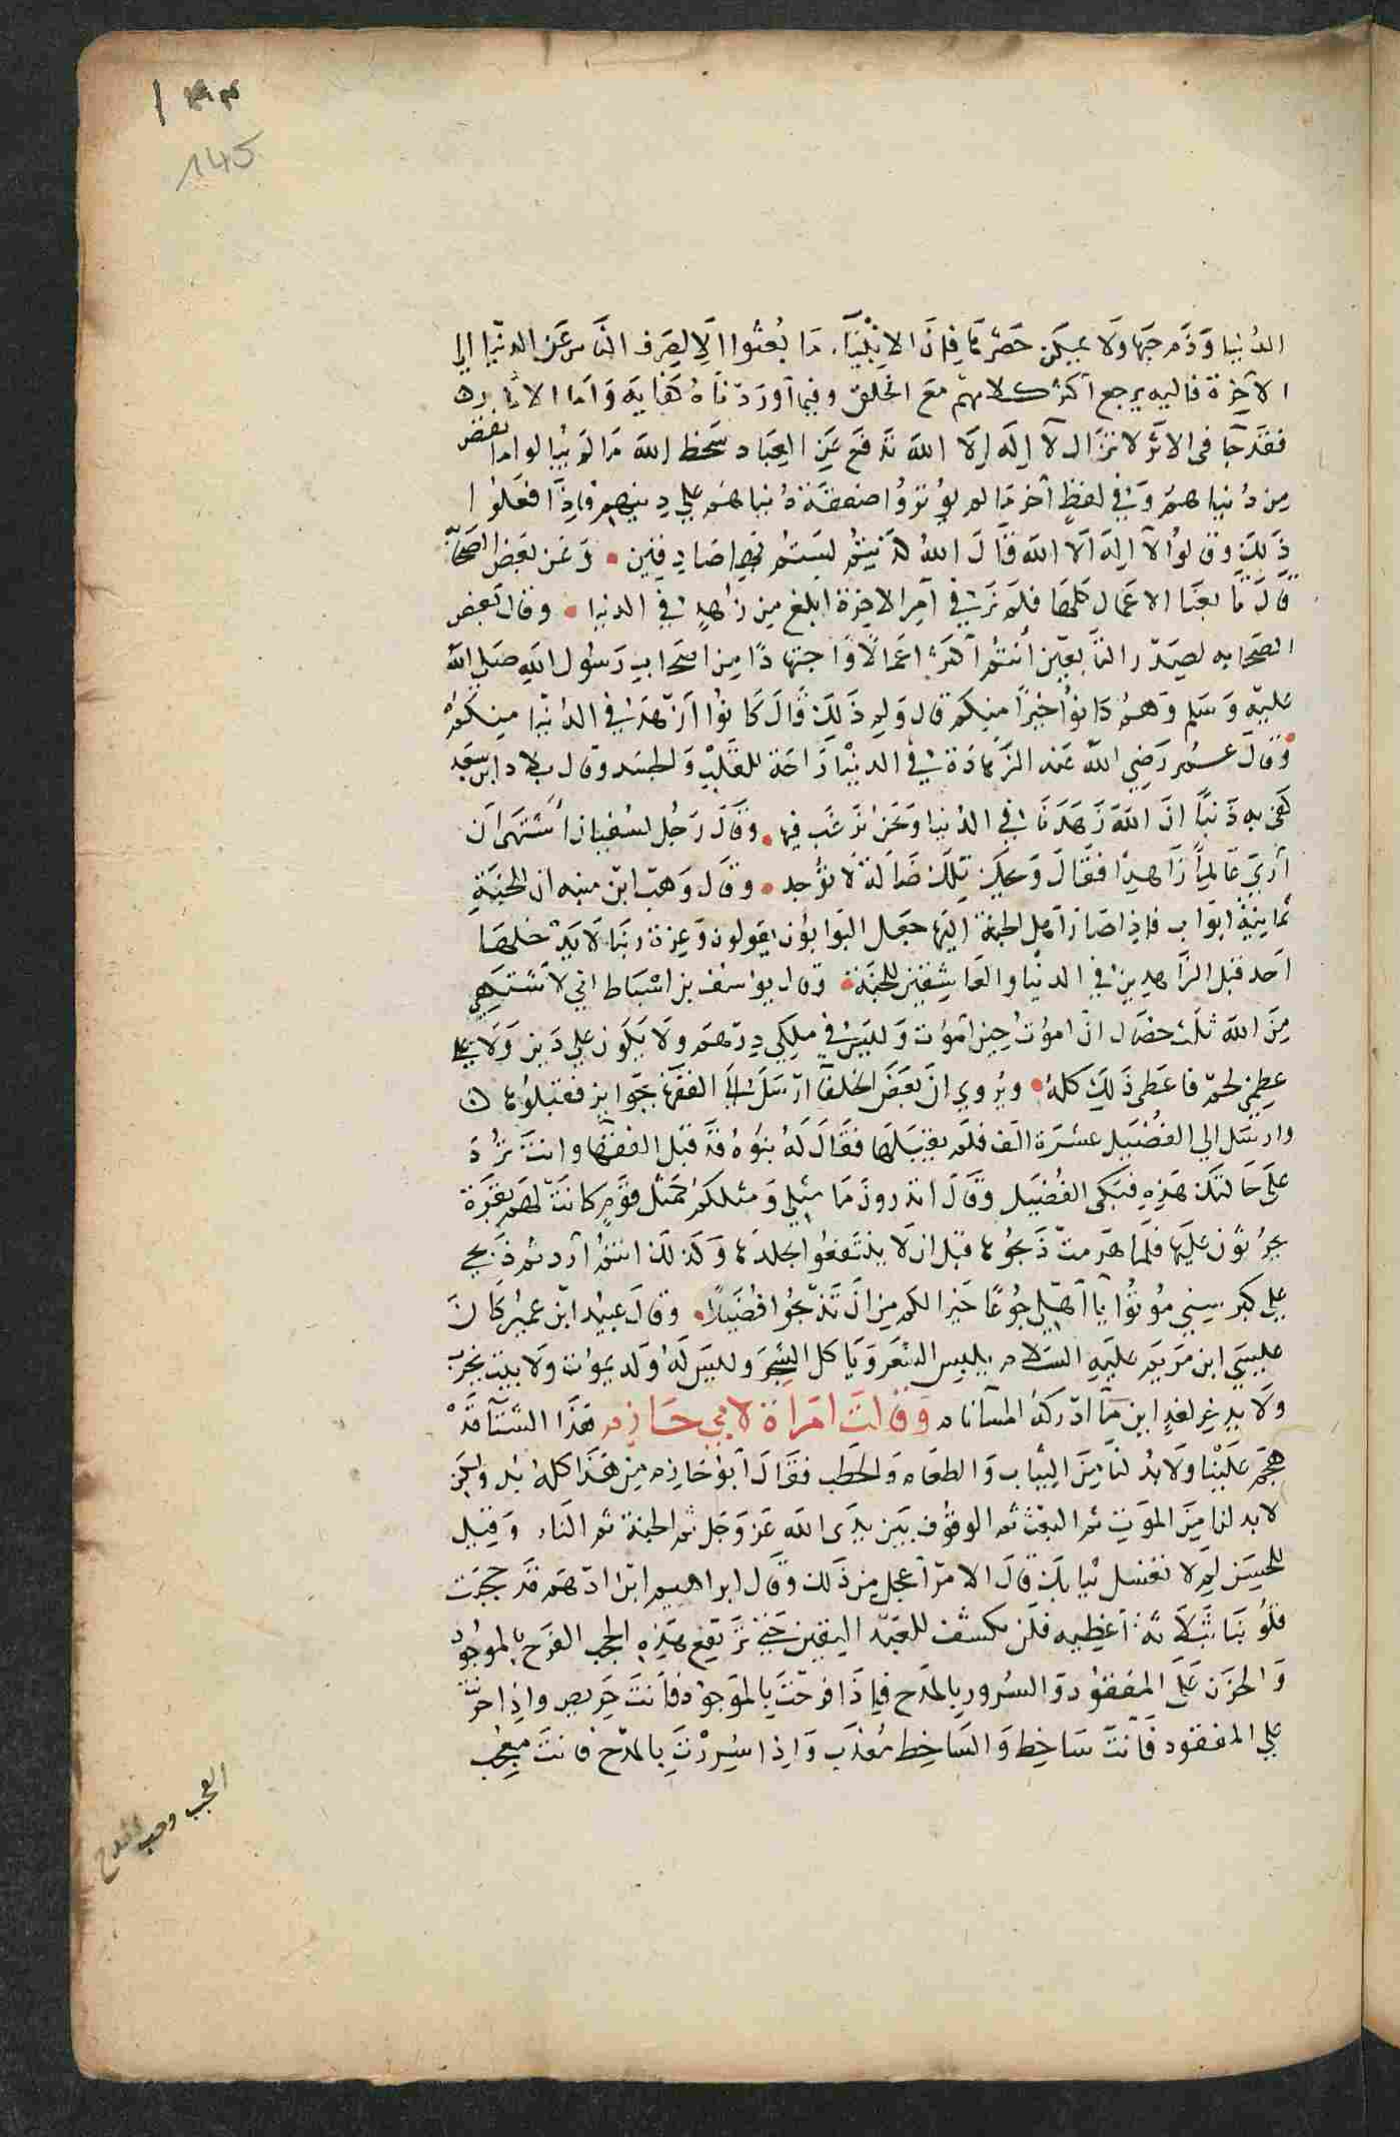 ١٤٣
145
الدُنيا وَذَم حبها وَلا يمكن حَصْرهَا فإن الانْبِيَاء ما بُعثُوا الَّا لِصَرف النَّاس عَن الدنْيا الى
الاخِرة فاليه يرجع أكثر كلامهم مَع الخلق وفيما أورَدنَاهُ كفايه وَاما الاثار
فقد جَا فى الاثر لا تزال لا إله إلا الله تدفَع عَنِ العِبَاد سَخط الله مَا لَم يُبالوا ما نقض
مِن دُنياهمُ وَفي لفظٍ آخر مَا لم يؤثرُوا صَفقة دُنياهمُ علي دِينهِم فَاِذَا فعَلوا
ذَلِكَ وقالوُا لا اله الا الله قَالَ اللهُ كذبتمُ لستُم بها صَادِقِين • وَعَن بعَض الصحَابه
قَالَ تَابعنَا الاعمَال كلهَا فلَم نَرَ في أمر الاخرة ابلغ مِن زُهدٍ في الدنيا • وقال بعض
الصَحابه لصدر التَّابعين أنتُم أكثَر اعمَالًا وَاجتهادًا مِن اصحَاب رَسُول اللهِ صَلي الله
عَليه وَسَلم وَهمُ كانوُا خيرًا مِنكم قال وَلم ذَلكَ قَالَ كَانوُا ازْهَد في الدنْيا مِنكمُ
وَقالَ عُمر رَضِي اللهُ عَنه الزهَادَة في الدنْيا رَاحَة للقلبْ وَالجسَد وقال بلاد ابن سَعد
كفى به ذَنبًا ان اللهَ زَهدَنَا في الدُنيا وَنحَن نرغَب فيها • وَقَالَ رَجُل لسُفيان أشتَهى أن
أرى عَالِماً زَاهِدًا فقَالَ وَيحكَ تِلكَ ضَالة لَا توُجد • وقَالَ وَهب ابن منبه ان للجَنةِ
ثمانِيَة ابوَاب فاِذا صَار أهل الجنة اليها جَعل البَوابُون يقولون وَعِزة ربنَا لَا يَدْخلهَا
احَد قبل الزَاهِدين في الدنْيا والعَاشِقين للجَنّة • وقال يوُسُف بن اسْبَاط انِي لاشتهى
مِنَ اللهِ ثَلثْ خصَال ان امُوت حِين أموُت وَليسَ في مِلكِي دِرهَم وَلَا يَكوُن علي دَين وَلَا علي
عظمِى لحم فاعطى ذَلِكَ كلهُ • وَيرُوي ان بَعَض الخلفا ارسَلَ الي الفقهَا بجوَايز فقبلوُها
وارسَل الي الفُضَيل عشرَة الف فلَم يقبَلهَا فقَالَ لَهُ بنوُهُ قد قبل الفقهَا وانتَ ترُدَ
علي حَالتك هَذِهِ فبكى الفُضَيل وَقَالَ اتدرونَ مَا مَثلي وَمثلكمُ كمَثل قوْمٍ كانَت لهم بقرَة
يحرُثوُن عَليها فلَما هَرمت ذَبحُوهَا قبل ان لَا ينتَفعُوا بجلدهَا وَكذلك انتمُ أردتُم ذَبحي
علي كبر سِنى موُتوُا يَا أهْلي جُوعًا خَير لكم مِن ان تَذبحُوا فُضَيلًا • وقَالَ عبيد ابن عمير كَانَ
عيسَي ابن مَريَم عليهِ السَلام يلبس الشعَر وَيَاكل الشجَر وليسَ لهُ وَلد يمُوت وَلَا بيت يخرب
وَلَا يدخر لغدٍ اين مَا ادركهُ المسَا نام وَقالت امَراة لابي حَازم هَذا الشتَا قد
هجَم عَليْنا وَلَا بد لنَا مِنَ الثياب وَالطعَام وَالحَطب فقَال أبوُ حَازم مِن هَذا كله بد ولكن
لا بد لنا مِنَ الموَتِ ثم البعْث ثم الوقوُف بَين يدَى اللهِ عَز وَجَل ثم الجنة ثم النَار وَقيل
للحسَن لِم لا تغسل ثيابكَ قالَ الامر أعجل مِن ذَلك وَقَال ابراهيم ابن ادهَم قد حجبَت
قلوُبنَا بثلاثة أغطِيه فلن يكشَف للعَبد اليقين حَتى ترتفع هَذِهِ الحجب الفرح بالموجُود
وَالحزَن عَلي المفقوُد وَالسُرور بالمدَح فإذا فرحْتَ بالموَجوُد فأنتَ حَريص وَاذِا حزنتَ
علي المفقود فأنتَ سَاخِط وَالسَاخِط مُعذب وَاِذا سُررْتَ بالمدح فانتَ مُعجب
العجب وحب المدح